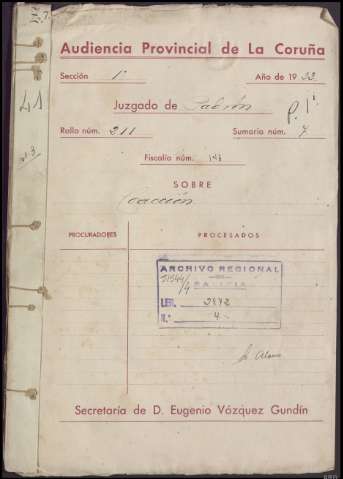 41
Audiencia Provincial de La Coruña
Sección 1ª Año de 1933
Juzgado de Padrón
P. 1ª
Rollo núm. 211 Sumario núm. 7
Fiscalía núm. 141
SOBRE
Coacción
PROCURADORES PROCESADOS
ARCHIVO REGIONAL
DE
GALICIA
LEG. 2872
N.º 4
Secretaría de D. Eugenio Vázquez Gundín